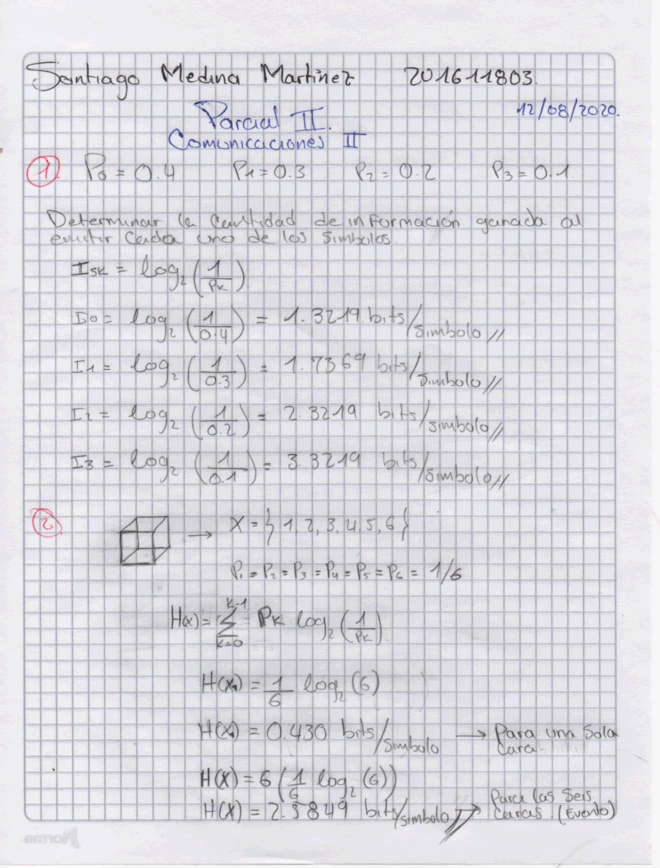 Santiago Medina Martinez 201611803.
12/08/2020.
Parcial II.
Comunicaciones II
1) P₀ = 0.4 P₁ = 0.3 P₂ = 0.2 P₃ = 0.1
Determinar la Cantidad de información ganada al
emitir Cada uno de los Simbolos.
I_SK = log₂ (1/PK)
I0 = log₂ (1/0.4) = 1.3219 bits/simbolo //
I1 = log₂ (1/0.3) = 1.7369 bits/simbolo //
I2 = log₂ (1/0.2) = 2.3219 bits/simbolo //
I3 = log₂ (1/0.1) = 3.3219 bits/simbolo //
2) → X = { 1, 2, 3, 4, 5, 6 }
P₁ = P₂ = P₃ = P₄ = P₅ = P₆ = 1/6
H(x) = Σ_{k=0}^{k-1} PK log₂ (1/PK)
H(X) = 1/6 log₂ (6)
H(X) = 0.430 bits/simbolo → Para una Sola
Cara.
H(X) = 6 (1/6 log₂ (6))
H(X) = 2.5849 bit/simbolo // → Para las Seis
Caras (Evento)
Norma